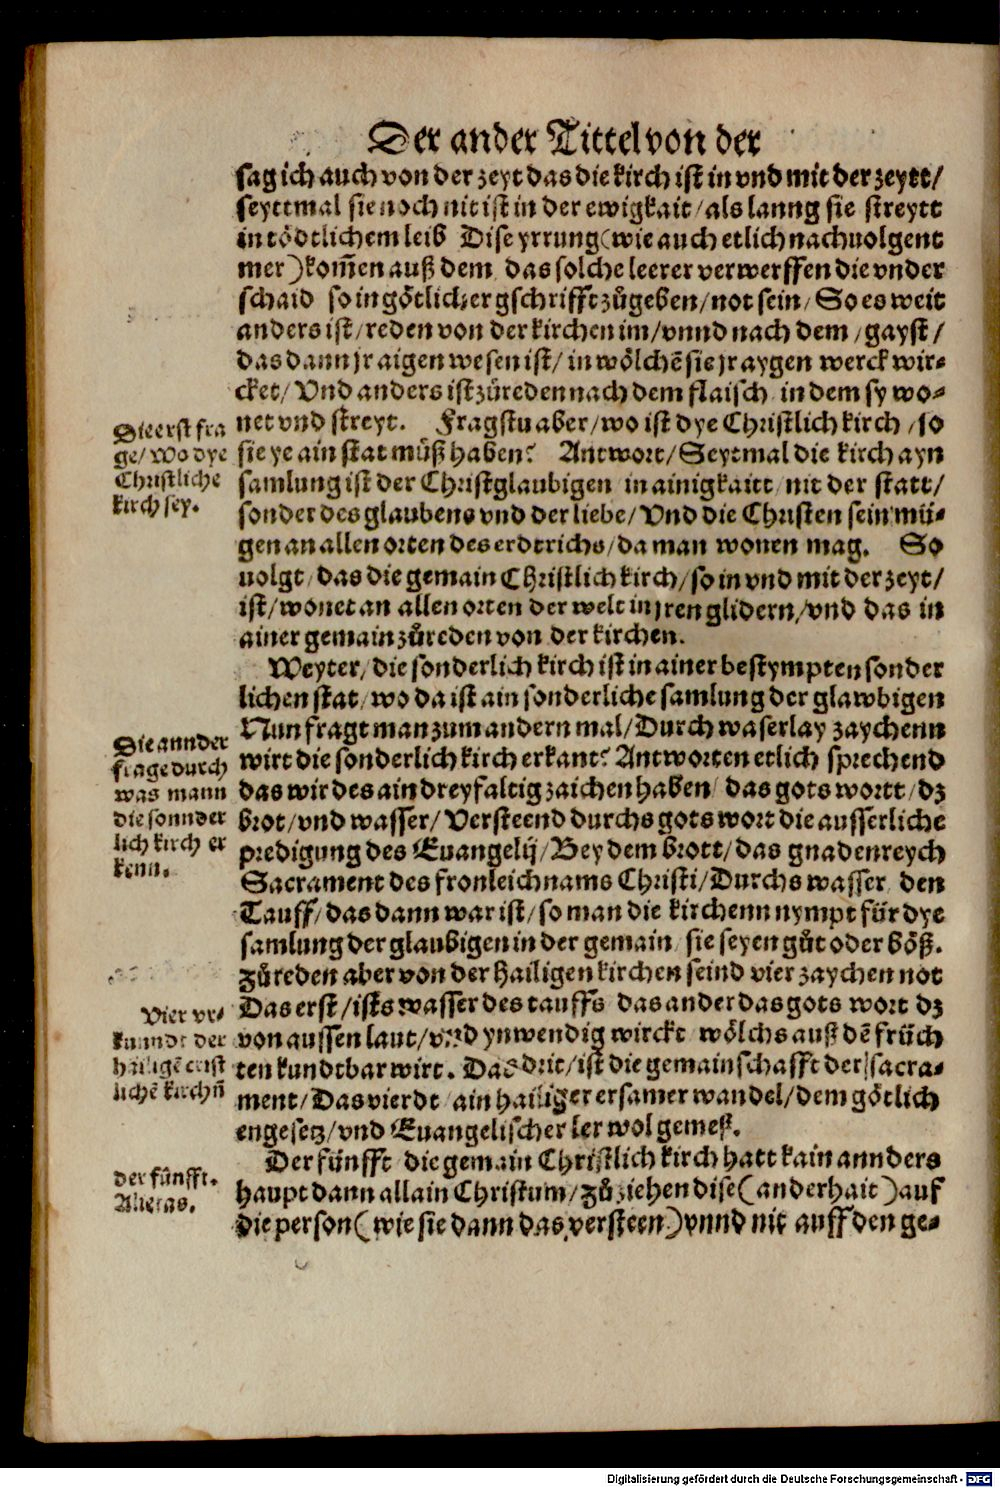 Der ander Tittel von der
sag ich auch von der zeyt das die kirch ist in vnd mit der zeytt/
seyttmal sie noch nit ist in der ewigkait/ als lanng sie streytt
in tödtlichem leib Dise yrrung (wie auch etlich nachuolgent
mer) kom̃en auß dem das solche leerer verwerffen die vnder
schaid so in götlicher gschrifft zůgeben/ not sein/ So es weit
anders ist/ reden von der kirchen im/ vnnd nach dem/ gayst/
das dann jr aigen wesen ist/ in wölchẽ sie jr aygen werck wir-
cket/ Vnd anders ist zůreden nach dem flaisch in dem sy wo-
net vnd streyt. Fragstu aber/ wo ist dye Christlich kirch/ so
sie ye ain stat můß haben? Antwort/ Seytmal die kirch ayn
samlung ist der Christglaubigen in ainigkaitt nit der statt/
sonder des glaubens vnd der liebe/ Vnd die Christen sein mü-
gen an allen orten des erdtrichs/ da man wonen mag. So
uolgt/ das die gemain Christlich kirch/ so in vnd mit der zeyt/
ist/ wonet an allen orten der welt in jren glidern/ vnd das in
ainer gemain zůreden von der kirchen.
Weyter/ die sonderlich kirch ist in ainer bestympten sonder
lichen stat/ wo da ist ain sonderliche samlung der glawbigen
Nun fragt man zum andern mal/ Durch waserlay zaychenn
wirt die sonderlich kirch erkant? Antworten etlich sprechend
das wir des ain dreyfaltig zaichen haben das gots wortt/ dz
brot/ vnd wasser/ Versteend durchs gots wort die ausserliche
predigung des Euangelij/ Bey dem brott/ das gnadenreych
Sacrament des fronleichnams Christi/ Durchs wasser den
Tauff/ das dann war ist/ so man die kirchenn nympt für dye
samlung der glaubigen in der gemain/ sie seyen gůt oder böß.
zůreden aber von der hailigen kirchen seind vier zaychen not
Das erst/ ists wasser des tauffs das ander das gots wort dz
von aussen laut/ vnd ynwendig wirckt wölchs auß dẽ früch
ten kundtbar wirt. Das drit/ ist die gemainschafft der sacra-
ment/ Das vierdt/ ain hailiger ersamer wandel/ dem götlich
en gesetz/ vnd Euangelischer ler wol gemeß.
Der fünfft die gemain Christlich kirch hatt kain annders
haupt dann allain Christum/ zů ziehen dise (anderhait) auf
die person (wie sie dann das versteen) vnnd nit auff den ge-
Die erst fra
ge/ Wo dye
Christliche
kirch sey.
Die annder
frage durch
was mann
die sonnder
lich kirch er
kenn.
Vier vr-
kunndt der
hailigẽ crist
lichẽ kirchñ
der fünfft.
Altetas.
Digitalisierung gefördert durch die Deutsche Forschungsgemeinschaft - DFG